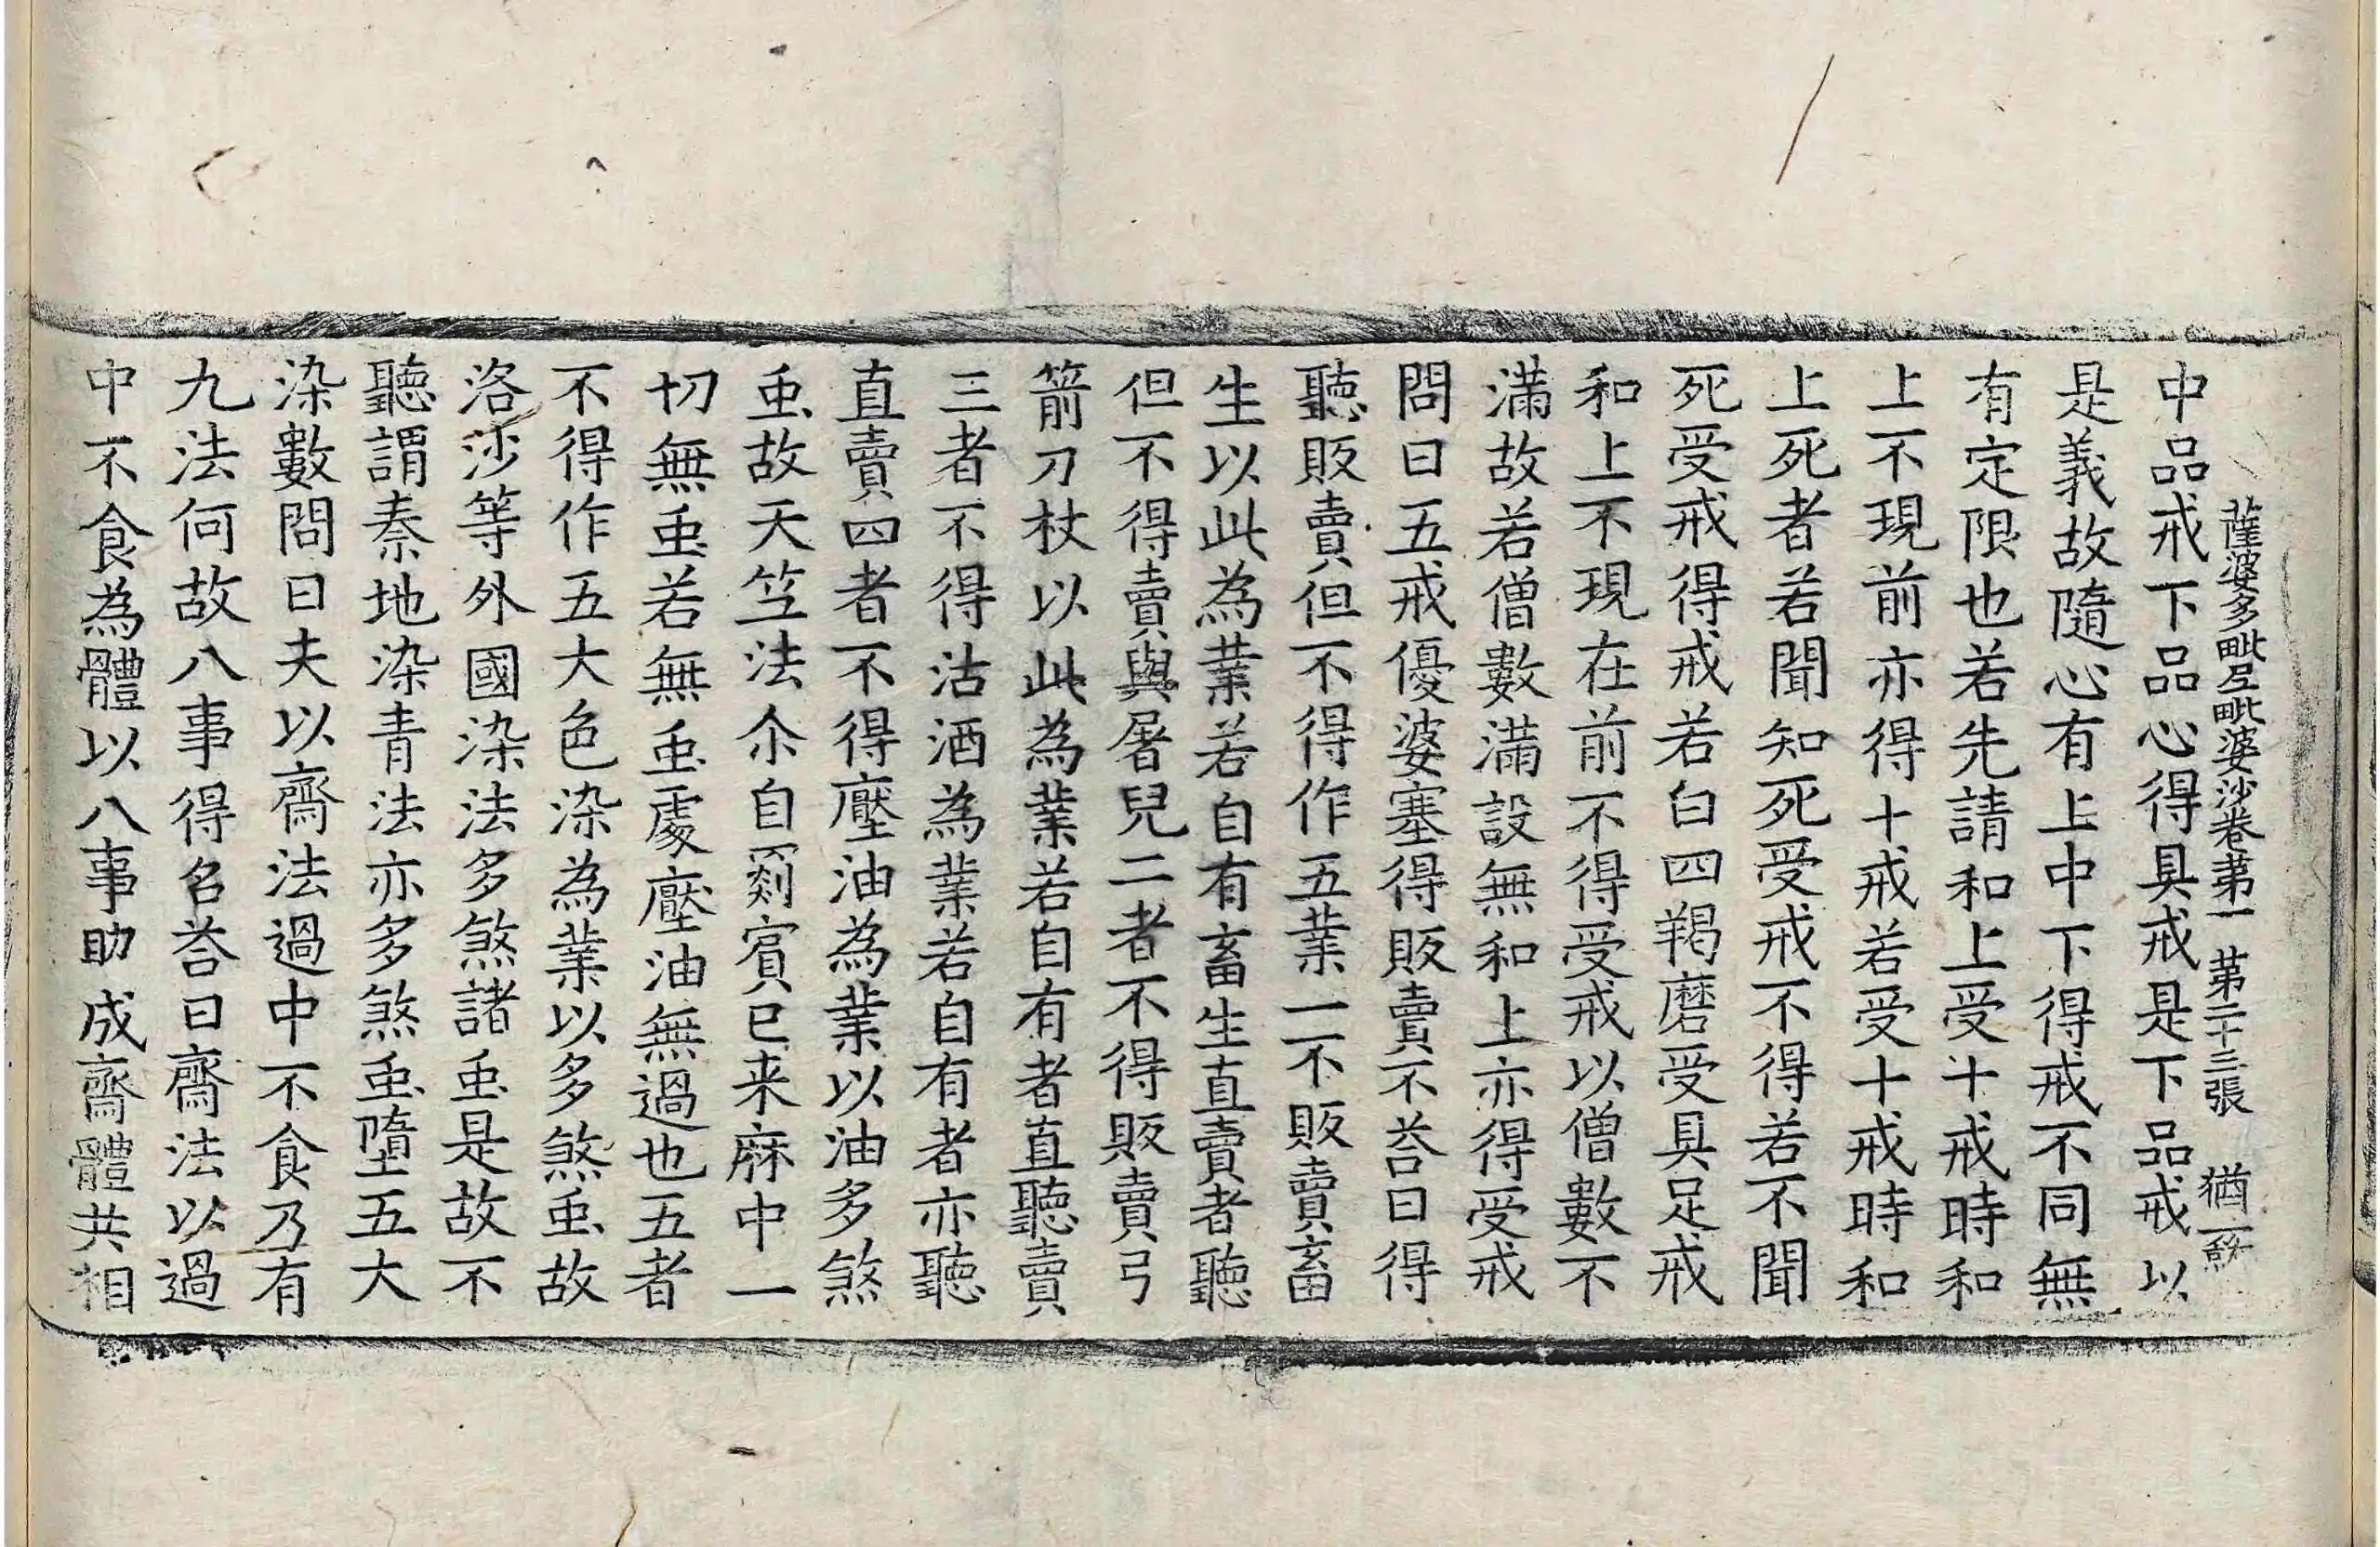 薩婆多毗尼毗婆沙卷苐一 苐二十三張 猶
中品戒下品心得具戒是下品戒以
是義故隨心有上中下得戒不同無
有定限也若先請和上受十戒時和
上不現前亦得十戒若受十戒時和
上死者若聞知死受戒不得若不聞
死受戒得戒若白四羯磨受具足戒
和上不現在前不得受戒以僧數不
滿故若僧數滿設無和上亦得受戒
問曰五戒優婆塞得販賣不荅曰得
聽販賣但不得作五業一不販賣畜
生以此為業若自有畜生直賣者聽
但不得賣與屠兒二者不得販賣弓
箭刀杖以此為業若自有者直聽賣
三者不得沽酒為業若自有者亦聽
直賣四者不得壓油為業以油多煞
䖝故天竺法尒自罽賓已来麻中一
切無䖝若無䖝處壓油無過也五者
不得作五大色染為業以多煞䖝故
洛沙等外國染法多煞諸䖝是故不
聽謂秦地染青法亦多煞䖝墮五大
染數問曰夫以齋法過中不食乃有
九法何故八事得名荅曰齋法以過
中不食為體以八事助成齋體共相